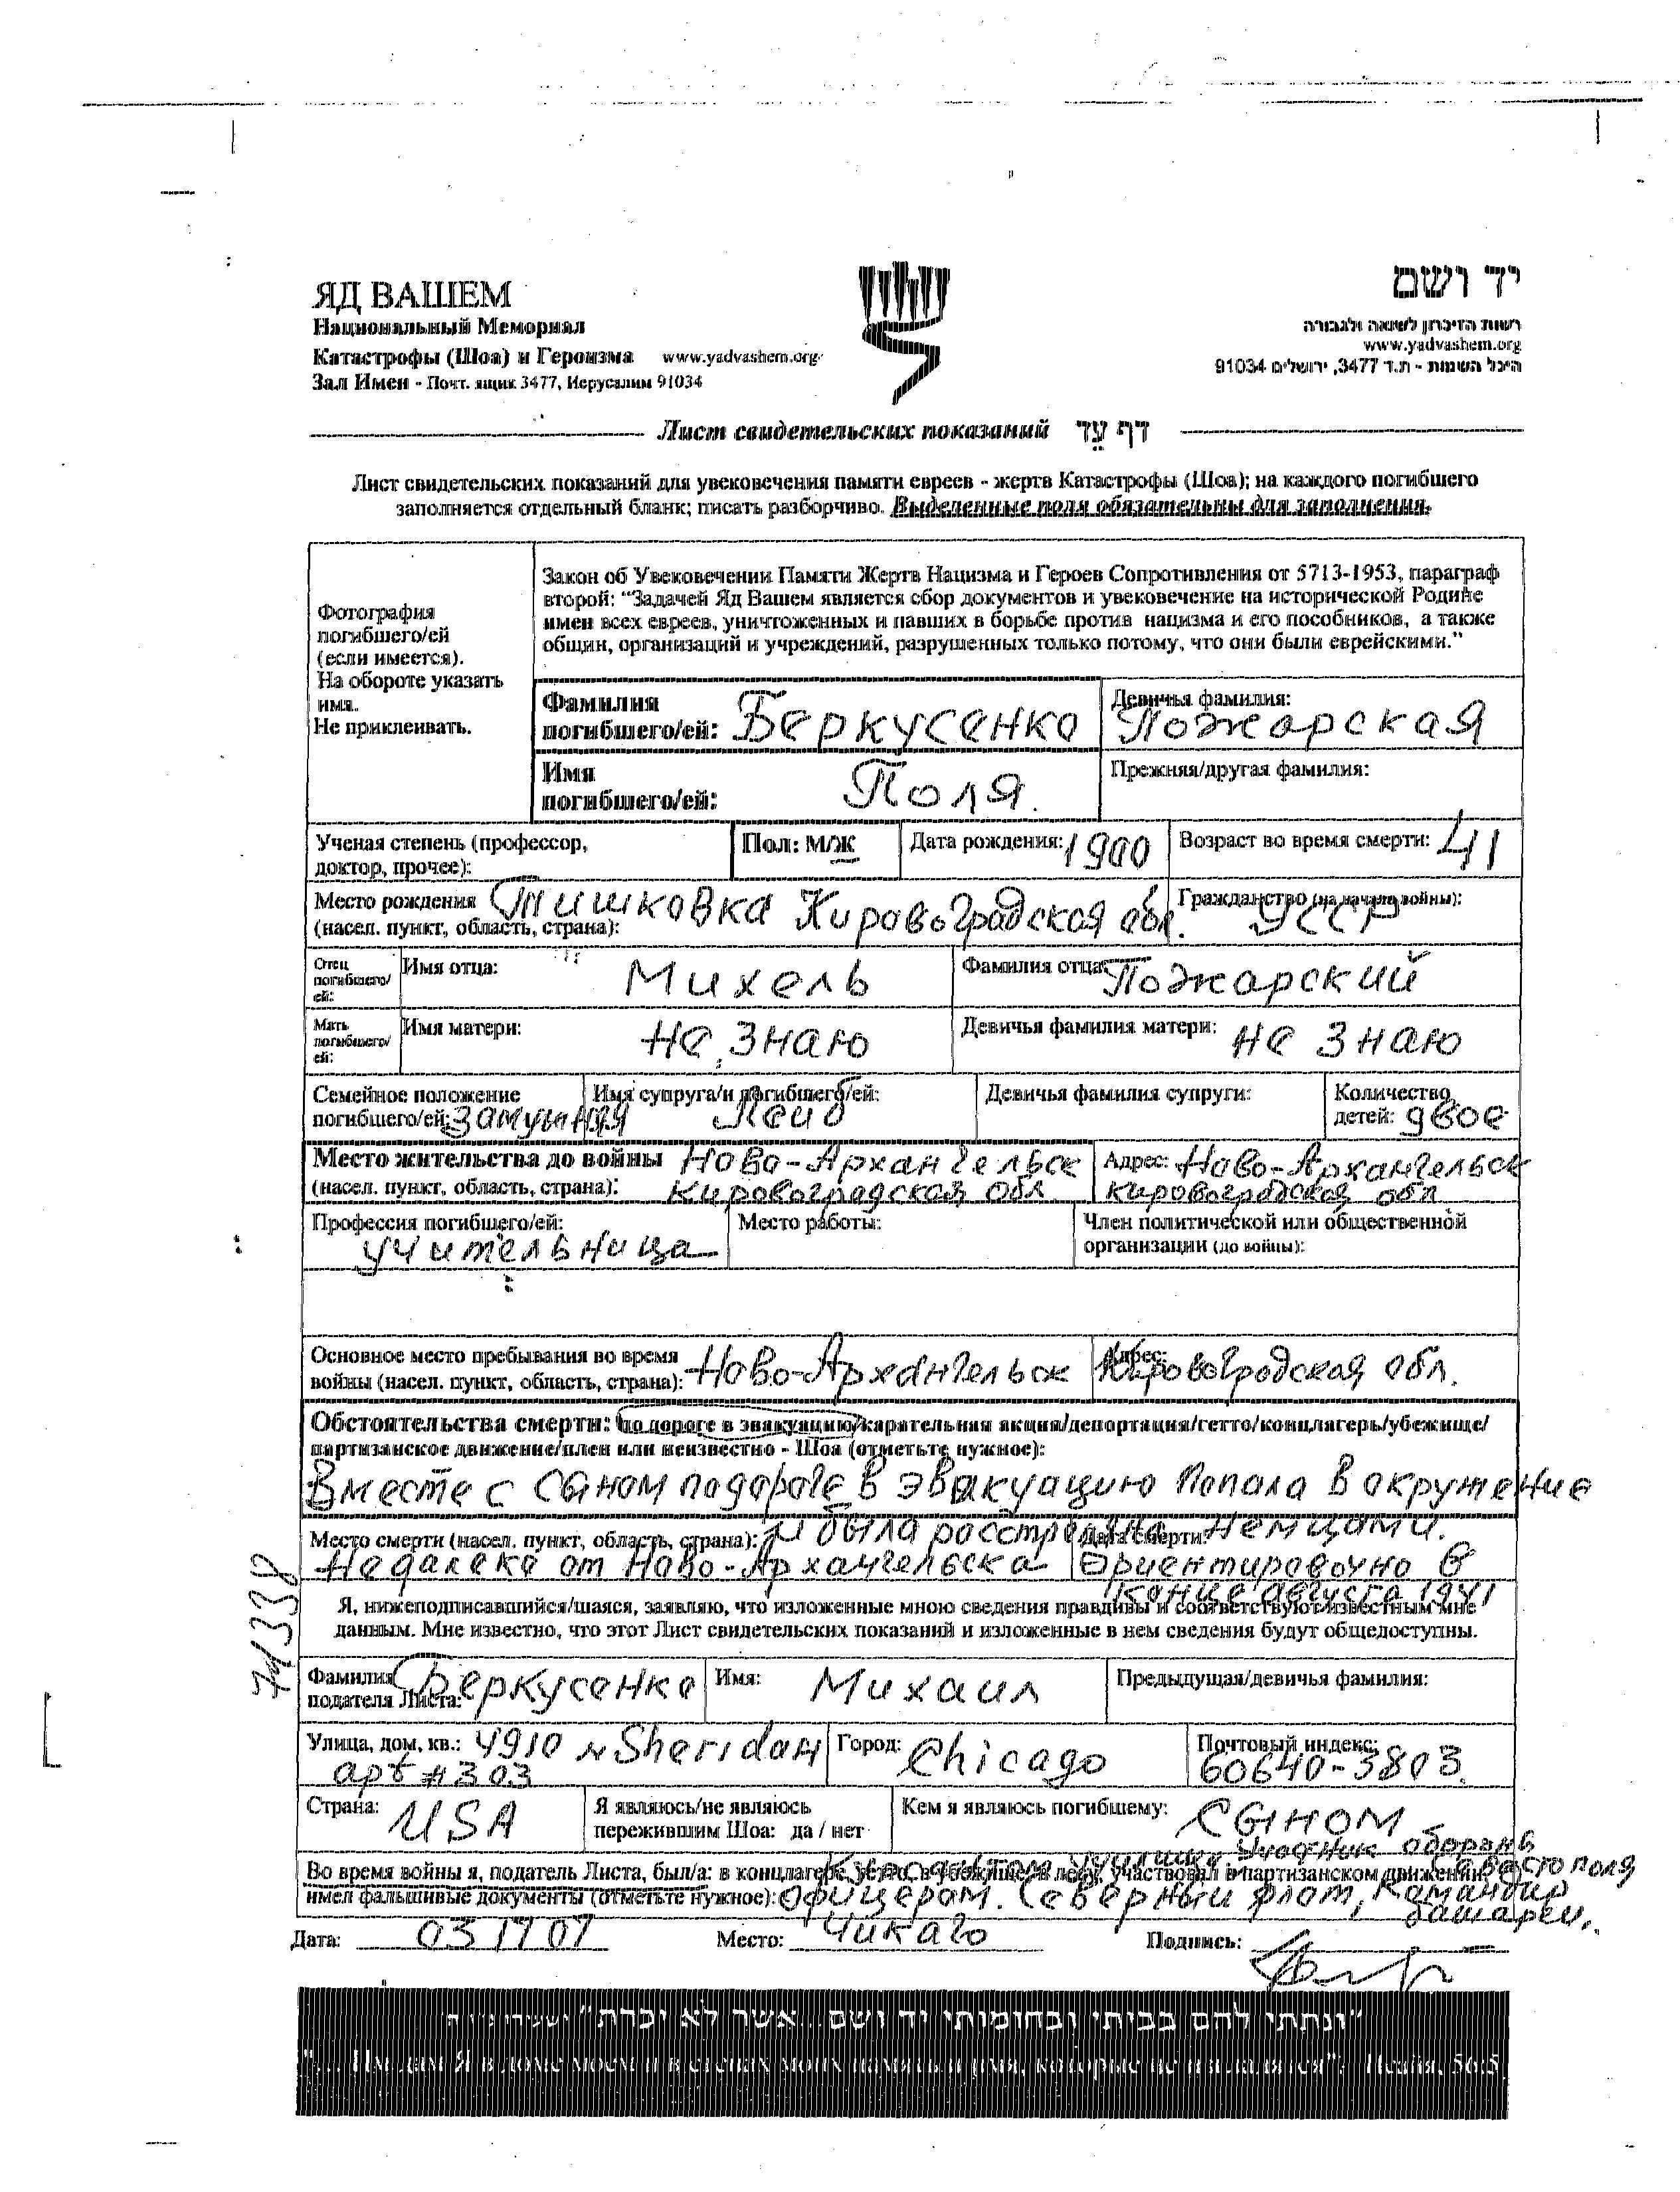 ЯД ВАШЕМ
Национальный Мемориал
Катастрофы (Шоа) и Героизма www.yadvashem.org
Зал Имен - Почт. ящик 3477, Иерусалим 91034
יד ושם
רשות הזיכרון לשואה ולגבורה
www.yadvashem.org
היכל השמות - ת.ד 3477, ירושלים 91034
Лист свидетельских показаний דף עֵד
Лист свидетельских показаний для увековечения памяти евреев - жертв Катастрофы (Шоа); на каждого погибшего
заполняется отдельный бланк; писать разборчиво. Выделенные поля обязательны для заполнения.
Фотография
погибшего/ей
(если имеется).
На обороте указать
имя.
Не приклеивать.
Закон об Увековечении Памяти Жертв Нацизма и Героев Сопротивления от 5713-1953, параграф
второй: “Задачей Яд Вашем является сбор документов и увековечение на исторической Родине
имен всех евреев, уничтоженных и павших в борьбе против нацизма и его пособников, а также
общин, организаций и учреждений, разрушенных только потому, что они были еврейскими.”
Фамилия
погибшего/ей: Беркусенко
Девичья фамилия:
Пожарская
Имя
погибшего/ей: Поля.
Прежняя/другая фамилия:
Ученая степень (профессор,
доктор, прочее):
Пол: М/Ж
Дата рождения: 1900
Возраст во время смерти: 41
Место рождения Тишковка Кировоградская обл.
(насел. пункт, область, страна):
Гражданство (на начало войны):
УССР
Отец
погибшего/
ей:
Имя отца: Михель
Фамилия отца: Пожарский
Мать
погибшего/
ей:
Имя матери: не знаю
Девичья фамилия матери: не знаю
Семейное положение
погибшего/ей: замужняя
Имя супруга/и погибшего/ей:
Лейб
Девичья фамилия супруги:
Количество
детей: двое
Место жительства до войны Ново-Архангельск
(насел. пункт, область, страна): Кировоградская обл
Адрес: Ново-Архангельск
Кировоградская обл
Профессия погибшего/ей:
учительница
Место работы:
Член политической или общественной
организации (до войны):
Основное место пребывания во время
войны (насел. пункт, область, страна): Ново-Архангельск
Адрес:
Кировоградская обл.
Обстоятельства смерти: по дороге в эвакуацию/карательная акция/депортация/гетто/концлагерь/убежище/
партизанское движение/плен или неизвестно - Шоа (отметьте нужное):
Вместе с сыном подороге в эвакуацию попала в окружение
и была расстреляна немцами.
Место смерти (насел. пункт, область, страна):
Недалеко от Ново-Архангельска
Дата смерти:
Ориентировочно в
конце августа 1941
Я, нижеподписавшийся/шаяся, заявляю, что изложенные мною сведения правдивы и соответствуют известным мне
данным. Мне известно, что этот Лист свидетельских показаний и изложенные в нем сведения будут общедоступны.
Фамилия
подателя Листа: Беркусенко
Имя: Михаил
Предыдущая/девичья фамилия:
Улица, дом, кв.: 4910 N Sheridan
apt #303
Город: Chicago
Почтовый индекс:
60640-3803
Страна: USA
Я являюсь/не являюсь
пережившим Шоа: да / нет
Кем я являюсь погибшему: сыном
Курсантом училища, участник обороны
Севастополя
Во время войны я, податель Листа, был/а: в концлагере, гетто, в убежище, в лесу, участвовал в партизанском движении,
имел фальшивые документы (отметьте нужное): офицером. Северный флот, командир
батареи.
Дата: 03 17 07
Место: Чикаго
Подпись:
"ונתתי להם בביתי ובחומותי יד ושם...אשר לא יכרת"